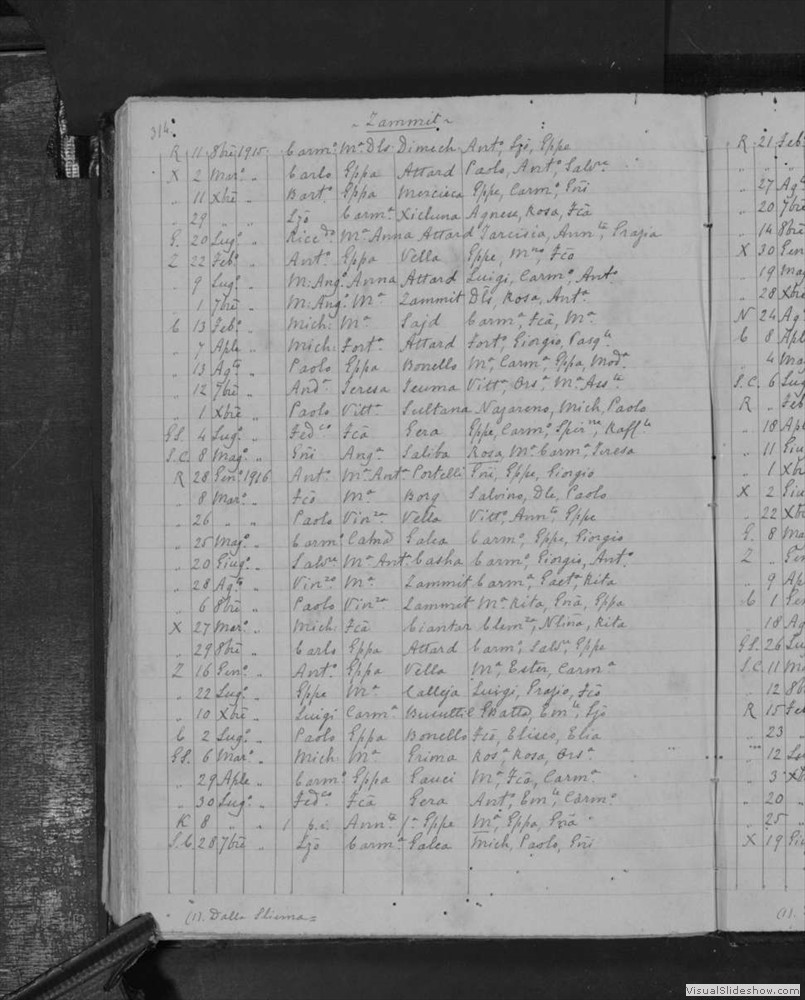 314.
- Zammit -
R 11 8bre 1915. Carmo Ma Dls Dimech Anto, Ljo, Eppe
X 2 Maro „ Carlo Eppa Attard Paolo, Anto, Salvre
„ 11 Xbre „ Barto Eppa Mercieca Eppe, Carmo, Gni
„ 29 „ „ Ljo Carma Xicluna Agnese, Rosa, Fca
G. 20 Lugo „ Riccdo Ma Anna Attard Tarcisia, Annta, Grazia
Z 22 Febo „ Anto Eppa Vella Eppe, Mneo, Fco
„ 9 Lugo „ M: Ango Anna Attard Luigi, Carmo, Anto
„ 1 7bre „ M: Ango Ma Zammit Dls, Rosa, Anto
C 13 Febo „ Mich: Ma Sajd Carma, Fca, Ma
„ 7 Aple „ Mich: Forta Attard Forto, Giorgio, Pasqle
„ 13 Agto „ Paolo Eppa Bonello Ma, Carma, Eppa, Moda
„ 12 7bre „ Anda Teresa Scuma Vitta, Orsa, Ma Assta
„ 1 Xbre „ Paolo Vitta Sultana Nazareno, Mich, Paolo
GS. 4 Lugo „ Fedco Fca Gera Eppe, Carmo, Spirne, Raffle
S.C. 8 Mago „ Gni Anga Saliba Rosa, Ma Carma, Teresa
R 28 Geno 1916 Anto Ma Anta Portelli Gni, Eppe, Giorgio
„ 8 Maro „ Fco Ma Borg Salvino, Dle, Paolo
„ 26 „ „ Paolo Vinza Vella Vitto, Annta, Eppe
„ 25 Mago „ Carmo Catna Galea Carmo, Eppe, Giorgio
„ 20 Giugo „ Salvre Ma Anta Casha Carmo, Giorgio, Anto
„ 28 Agto „ Vinzo Ma Zammit Carma, Gaeta Rita
„ 6 8bre „ Paolo Vinza Zammit Ma Rita, Gna, Eppa
X 27 Maro „ Mich: Fca Ciantar Clema, Nlina, Rita
„ 29 8bre „ Carlo Eppa Attard Carmo, Salvre, Eppe
Z 16 Geno „ Anto Eppa Vella Ma, Ester, Carma
„ 22 Lugo „ Eppe Ma Calleja Luigi, Grazio, Fco
„ 10 Xbre „ Luigi Carma Buttigieg Emle, Ljo
C 2 Lugo „ Paolo Eppa Bonello Fco, Eliseo, Elia
GS. 6 Maro „ Mich: Ma Grima Rosa Rosa, Orsa
„ 29 Aple „ Carmo Eppa Gauci Ma, Fca, Carma
„ 30 Lugo „ Fedco Fca Gera Anto, Emle, Carmo
K 8 „ „ 1 p.i. Annta fa Eppe Ma, Eppa, Gna
S.C 28 7bre „ Ljo Carma Galea Mich, Paolo, Gni
(1). Dalla Stiema =
R 21 Feb
27 Ag
20 7bre
14 8bre
X 30 Gen
19 Mag
28 Xbr
N 24 Ag
C 8 Apl
4 Mag
S.C. 6 Lug
R „ Feb
18 Apl
11 Giu
1 Xbr
X 2 Giu
22 Xbr
G. 8 Ma
Z „ Gen
9 Ap
C 1 Gen
18 Ag
GS. 26 Lu
S.C. 11 Ma
12 8b
R 15 Feb
23 „
12 Lu
3 Xb
20 „
25 „
X 19 Giu
(1).
VisualSlideshow.com